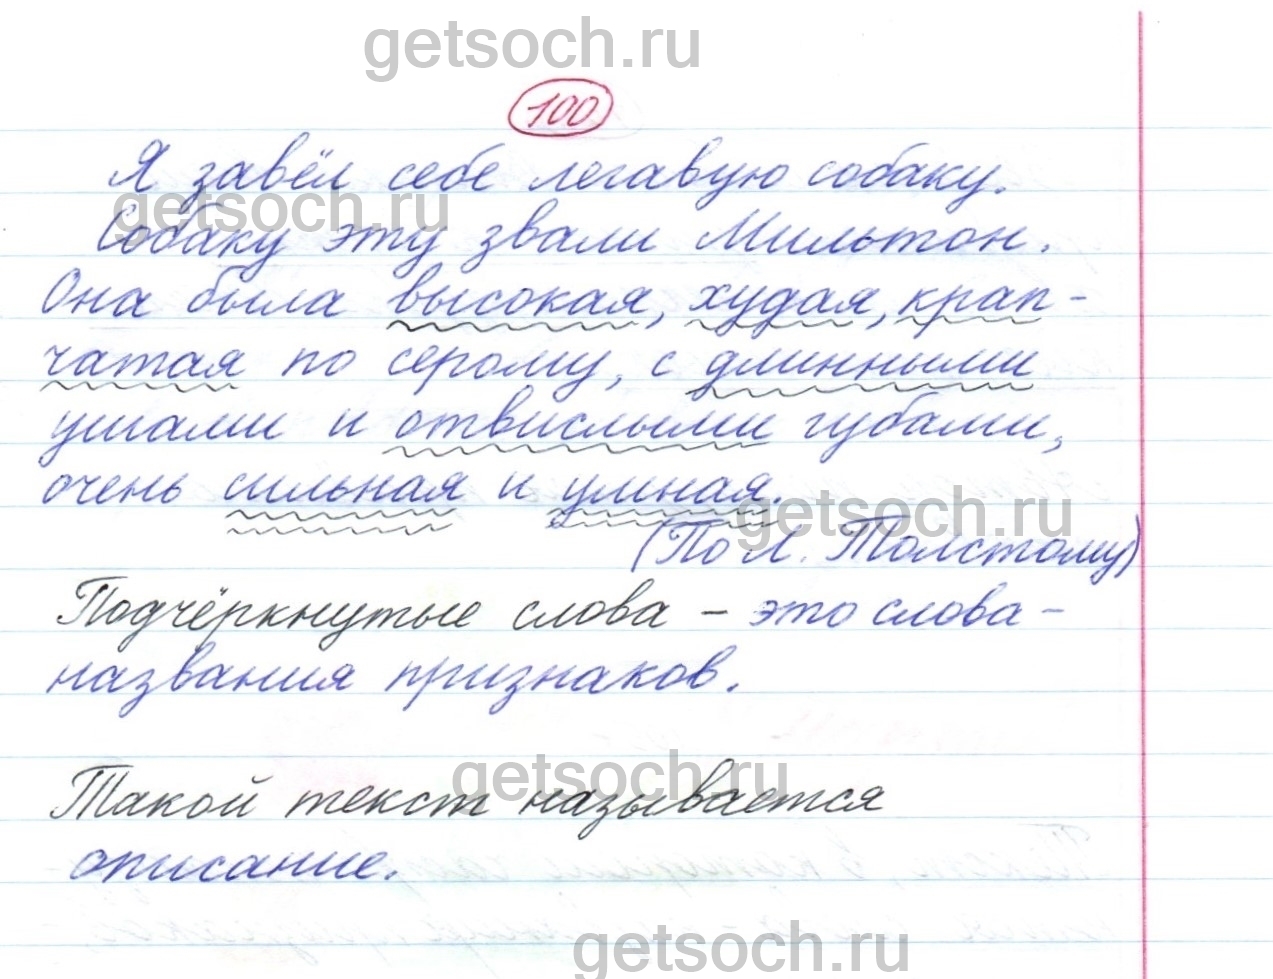 getsoch.ru
100
Я завёл себе легавую собаку.
getsoch.ru
Собаку эту звали Мильтон.
Она была высокая, худая, крап-
чатая по серому, с длинными
ушами и отвислыми губами,
очень сильная и умная.
getsoch.ru
(По Л. Толстому)
Подчёркнутые слова – это слова-
названия признаков.
getsoch.ru
Такой текст называется
описание.
getsoch.ru